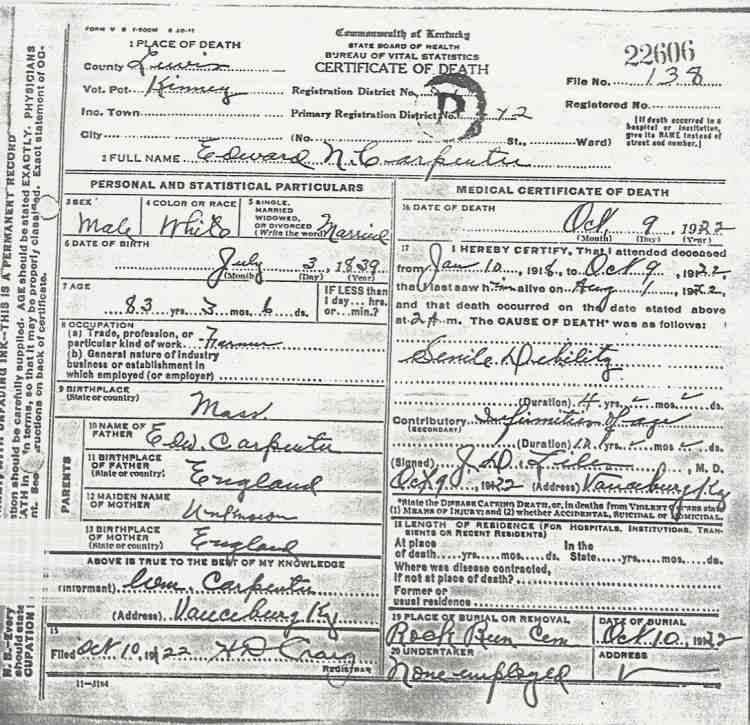 FORM V S 1-500M 8 20-11
Commonwealth of Kentucky
STATE BOARD OF HEALTH
BUREAU OF VITAL STATISTICS
CERTIFICATE OF DEATH
22606
File No. 138
Registered No.
[If death occurred in a
hospital or institution,
give its NAME instead of
street and number.]
1 PLACE OF DEATH
County Lewis
Vot. Pct Kinney
Registration District No.
Inc. Town
Primary Registration District No. 42
City
(No. St., Ward)
2 FULL NAME Edward N. Carpenter
PERSONAL AND STATISTICAL PARTICULARS
3 SEX
Male
4 COLOR OR RACE
White
5 SINGLE,
MARRIED
WIDOWED,
OR DIVORCED
(Write the word) Married
6 DATE OF BIRTH
July 3, 1839
(Month) (Day) (Year)
7 AGE
83 yrs. 3 mos. 6 ds.
IF LESS than
1 day... hrs.
or... min.?
8 OCCUPATION
(a) Trade, profession, or
particular kind of work Farmer
(b) General nature of industry
business or establishment in
which employed (or employer)
9 BIRTHPLACE
(State or country)
Mass
PARENTS
10 NAME OF
FATHER
Edw. Carpenter
11 BIRTHPLACE
OF FATHER
(State or country)
England
12 MAIDEN NAME
OF MOTHER
Unknown
13 BIRTHPLACE
OF MOTHER
(State or country)
England
ABOVE IS TRUE TO THE BEST OF MY KNOWLEDGE
(Informant) Wm. Carpenter
(Address) Vanceburg Ky
15
Filed Oct 10, 1922 H D Craig
REGISTRAR
11-3184
MEDICAL CERTIFICATE OF DEATH
16 DATE OF DEATH
Oct, 9, 1922
(Month) (Day) (Year)
17 I HEREBY CERTIFY, That I attended deceased
from Jan 10, 1918, to Oct 9, 1922,
that I last saw him alive on Aug 1, 1922,
and that death occurred on the date stated above
at 2 A m. The CAUSE OF DEATH* was as follows:
Senile Debility
(Duration) 4 yrs. mos. ds.
Contributory Infirmities of age
(SECONDARY)
(Duration) yrs. mos. ds.
(Signed) J. D. M. D.
Oct 9, 1922 (Address) Vanceburg Ky
*State the DISEASE CAUSING DEATH, or, in deaths from VIOLENT CAUSES state
(1) MEANS OF INJURY; and (2) whether ACCIDENTAL, SUICIDAL or HOMICIDAL.
18 LENGTH OF RESIDENCE (FOR HOSPITALS, INSTITUTIONS, TRAN-
SIENTS OR RECENT RESIDENTS)
At place In the
of death yrs. mos. ds. State yrs. mos. ds.
Where was disease contracted,
if not at place of death?
Former or
usual residence
19 PLACE OF BURIAL OR REMOVAL
Rock Run Cem
DATE OF BURIAL
Oct, 10, 1922
20 UNDERTAKER
None employed
ADDRESS
UNFADING INK—THIS IS A PERMANENT RECORD
should be carefully supplied. AGE should be stated EXACTLY. PHYSICIANS
terms, so that it may be properly classified. Exact statement of OC-
on back of certificate.
N. B.—Every
should state
CUPATION